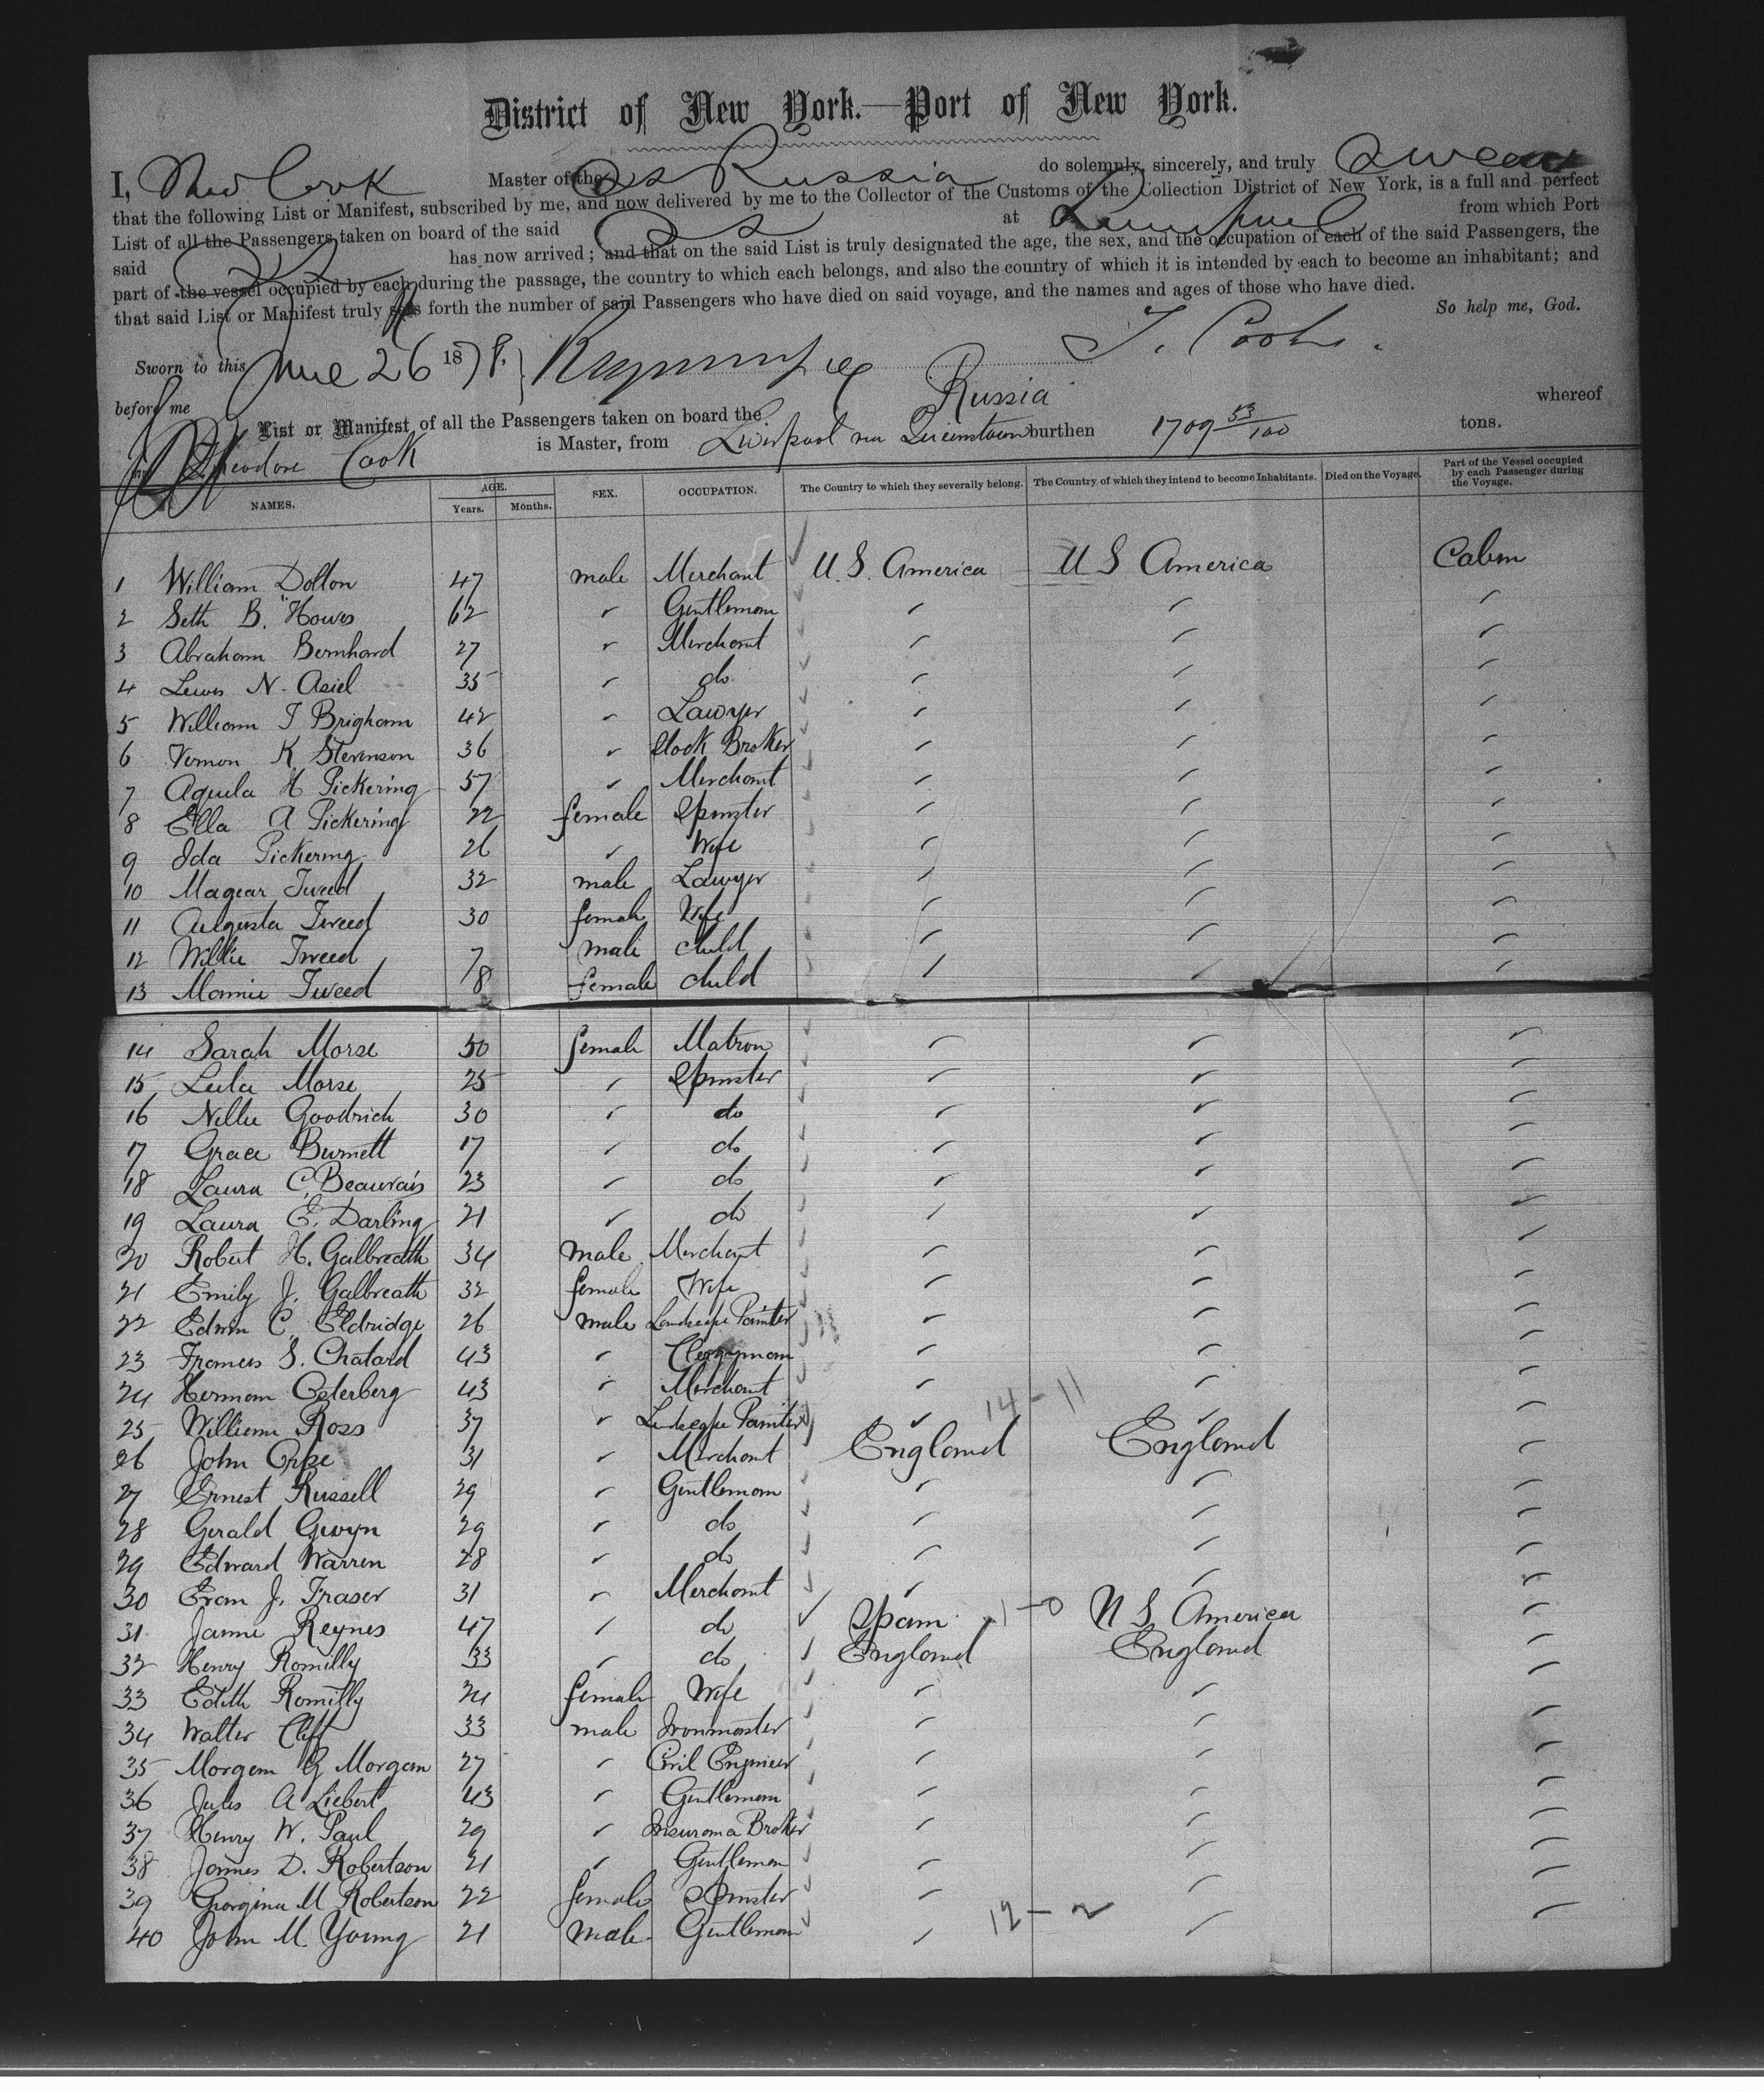 District of New York.—Port of New York.
I, Theo Cook Master of the SS Russia do solemnly, sincerely, and truly swear
that the following List or Manifest, subscribed by me, and now delivered by me to the Collector of the Customs of the Collection District of New York, is a full and perfect
List of all the Passengers taken on board of the said SS at Liverpool from which Port
said SS has now arrived; and that on the said List is truly designated the age, the sex, and the occupation of each of the said Passengers, the
part of the vessel occupied by each during the passage, the country to which each belongs, and also the country of which it is intended by each to become an inhabitant; and
that said List or Manifest truly sets forth the number of said Passengers who have died on said voyage, and the names and ages of those who have died.
So help me, God.
Sworn to this June 26 1878. T. Cook.
before me
List or Manifest of all the Passengers taken on board the Russia whereof
Theodore Cook is Master, from Liverpool via Queenstown burthen 1709 53/100 tons.
NAMES. AGE. Years. Months. SEX. OCCUPATION. The Country to which they severally belong. The Country of which they intend to become Inhabitants. Died on the Voyage. Part of the Vessel occupied by each Passenger during the Voyage.
1 William Dolton 47 male Merchant U.S. America U S America Cabin
2 Seth B. Howes 62 " Gentleman " " "
3 Abraham Bernhard 27 " Merchant " " "
4 Lewis N. Asiel 35 " do " " "
5 William T Brigham 42 " Lawyer " " "
6 Vernon K Stevenson 36 " Stock Broker " " "
7 Aquila H Pickering 57 " Merchant " " "
8 Ella A Pickering 22 female Spinster " " "
9 Ida Pickering 26 " Wife " " "
10 Magear Tweed 32 male Lawyer " " "
11 Augusta Tweed 30 female Wife " " "
12 Willie Tweed 7 male child " " "
13 Mamie Tweed 8 female child " " "
14 Sarah Morse 50 female Matron " " "
15 Lula Morse 25 " Spinster " " "
16 Nellie Goodrich 30 " do " " "
17 Grace Burnett 17 " do " " "
18 Laura C. Beauvais 23 " do " " "
19 Laura E. Darling 21 " do " " "
20 Robert H. Galbreath 34 male Merchant " " "
21 Emily J. Galbreath 32 female Wife " " "
22 Edwin C. Eldridge 26 male Landscape Painter " " "
23 Francis S. Chatard 43 " Clergyman " " "
24 Herman Osterberg 43 " Merchant " " "
25 William Ross 37 " Landscape Painter " 14-11 " "
26 John Opie 31 " Merchant England England "
27 Ernest Russell 29 " Gentleman " " "
28 Gerald Gwyn 29 " do " " "
29 Edward Warren 28 " do " " "
30 Evan J. Fraser 31 " Merchant " " "
31 Jaime Reynes 47 " do Spain 1-0 U S. America "
32 Henry Romilly 33 " do England England "
33 Edith Romilly 24 female Wife " " "
34 Walter Clift 33 male Ironmaster " " "
35 Morgan G Morgan 27 " Civil Engineer " " "
36 Jules A Liebert 43 " Gentleman " " "
37 Henry W. Paul 29 " Insurance Broker " " "
38 James D. Robertson 21 " Gentleman " " "
39 Georgina M Robertson 22 female Spinster " " "
40 John M. Young 21 male Gentleman " 12-2 " "